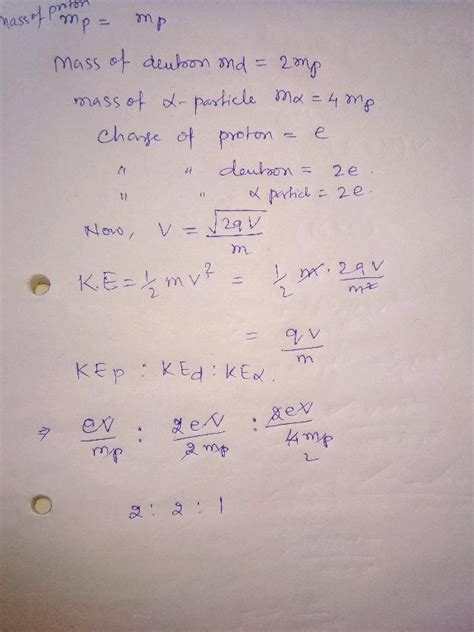 mass of proton mp = mp
Mass of deutron md = 2mp
mass of α-particle mα = 4 mp
Charge of proton = e
" " deutron = 2e.
" " α particl = 2e.
Now, V = √2qV / m
K.E = 1/2 m v² = 1/2 m · 2qV / m²
= qV / m
KEp : KEd : KEα.
⇒ eV / mp : 2eV / 2mp : 2eV / 4mp 2
2 : 2 : 1